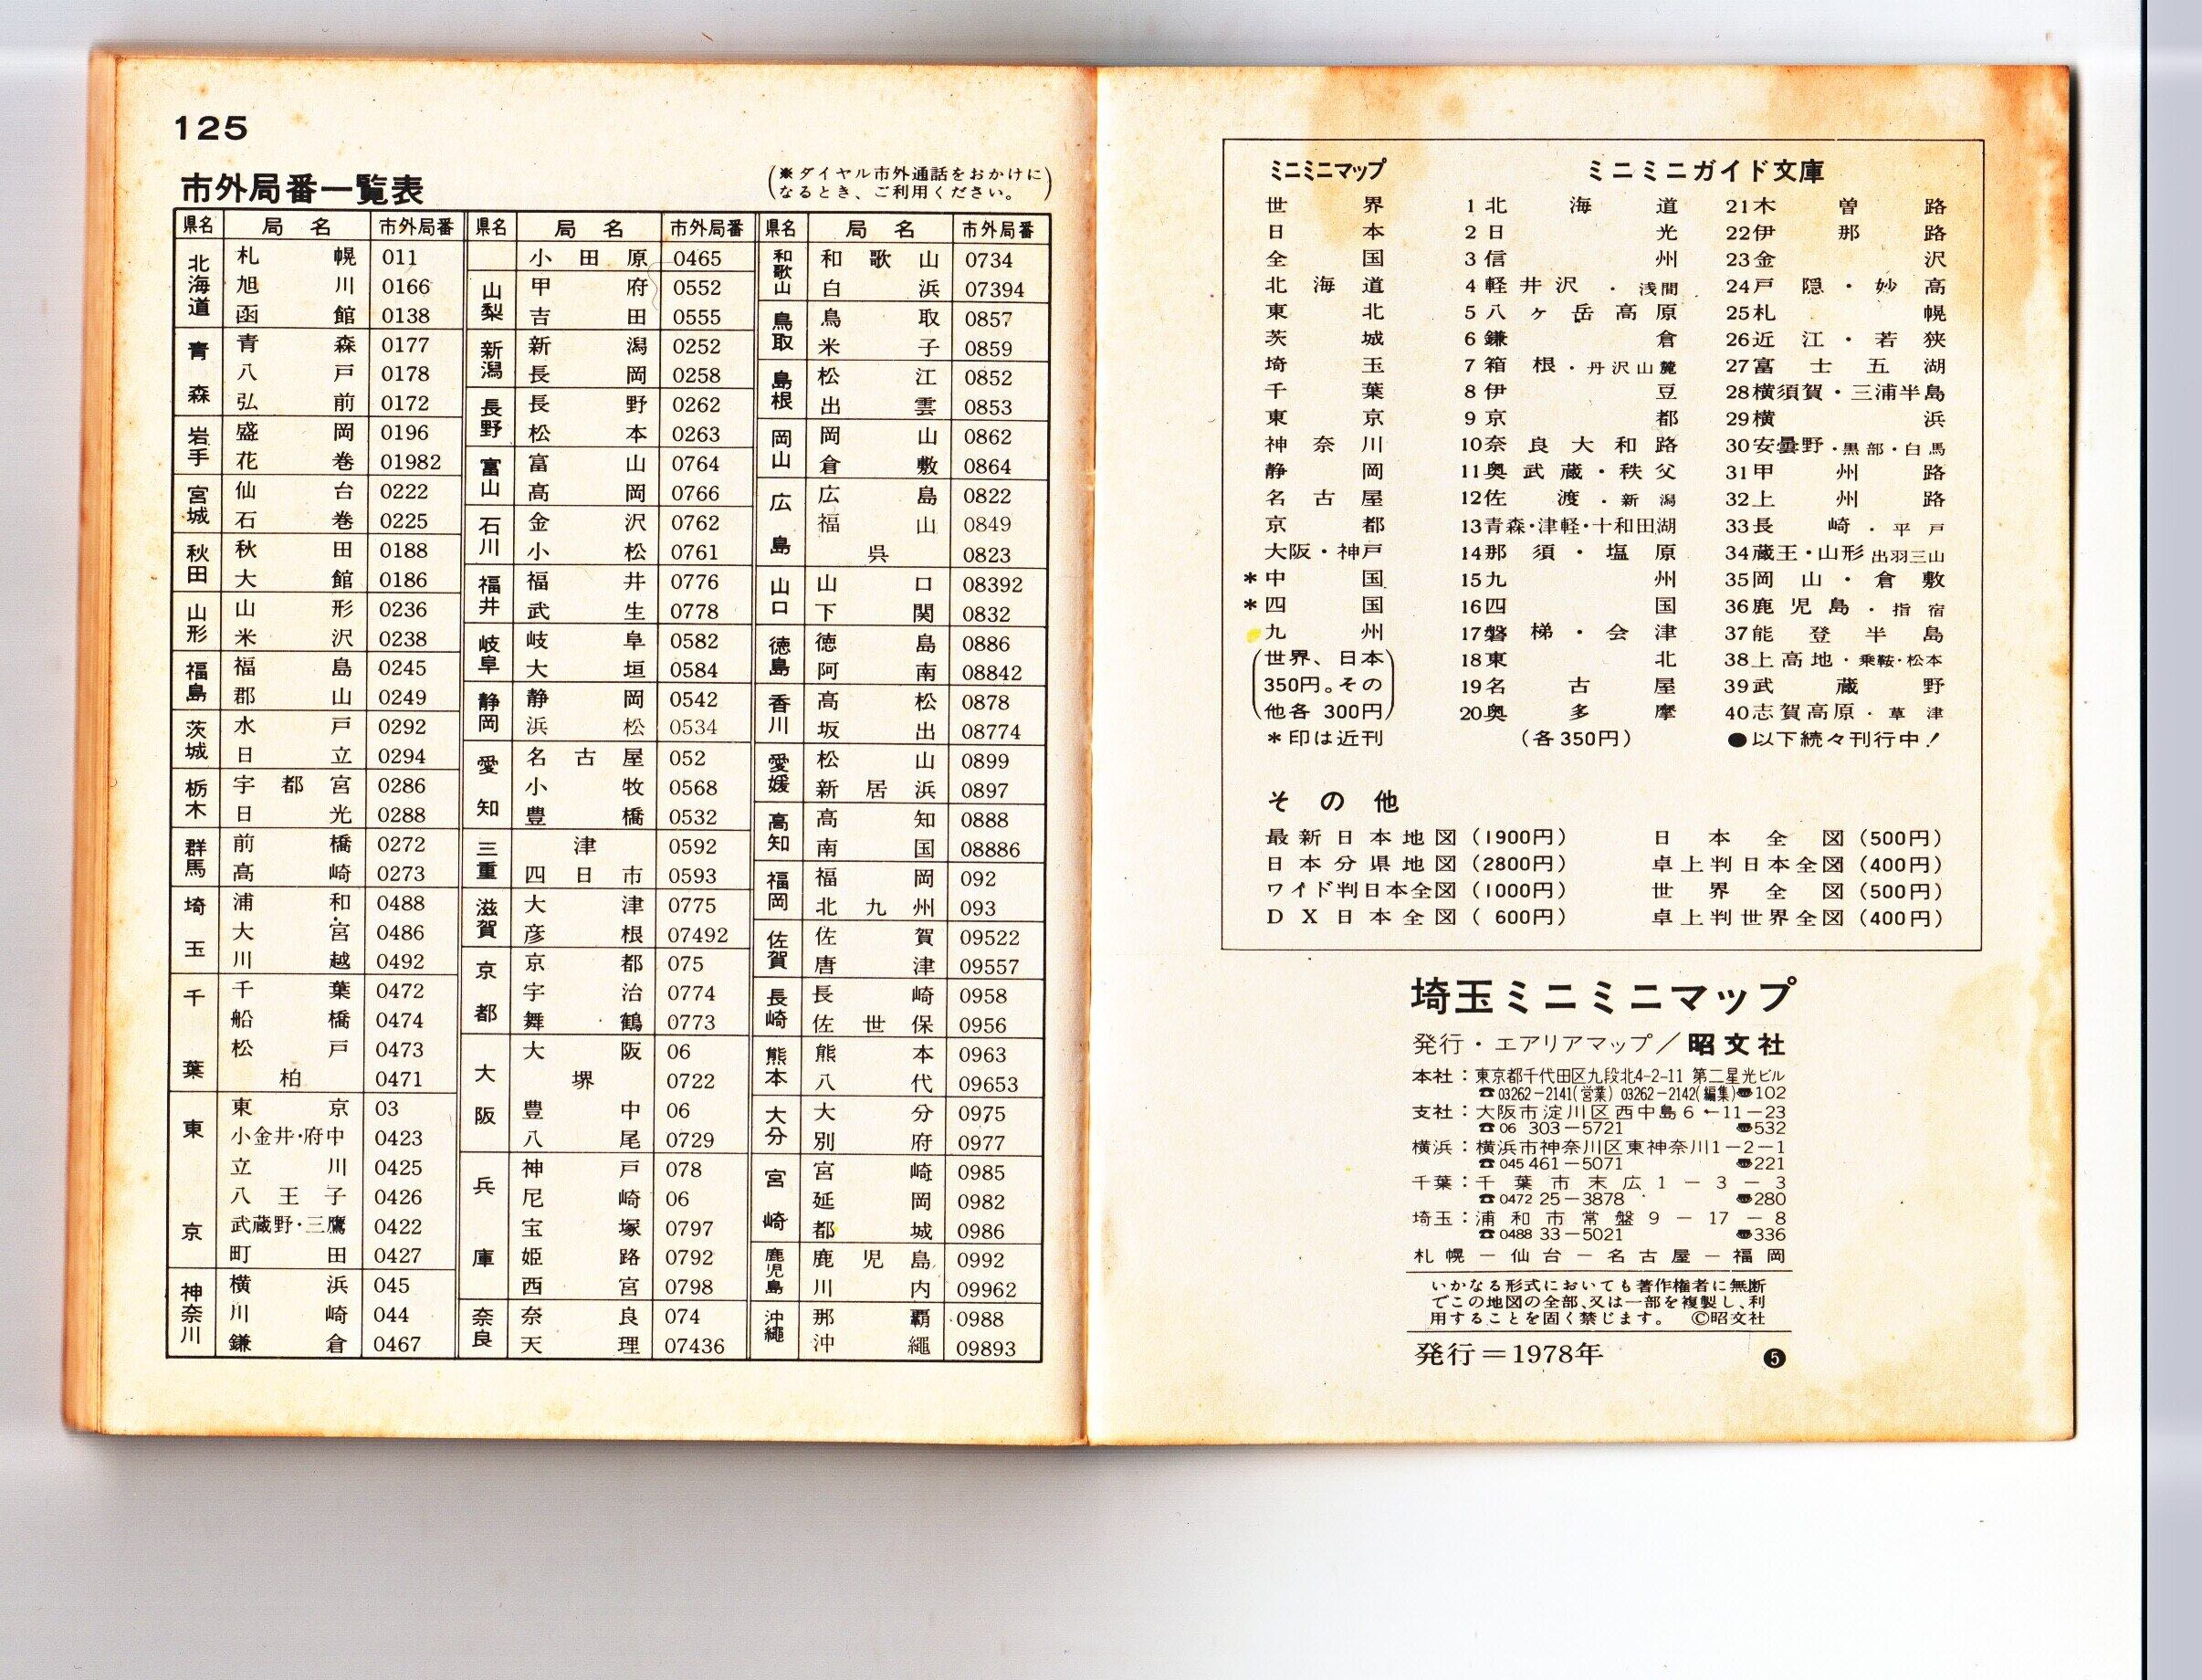 125
市外局番一覧表
(※ダイヤル市外通話をおかけに
なるとき、ご利用ください。)
県名 局名 市外局番
北海道 札幌 011
旭川 0166
函館 0138
青森 青森 0177
八戸 0178
弘前 0172
岩手 盛岡 0196
花巻 01982
宮城 仙台 0222
石巻 0225
秋田 秋田 0188
大館 0186
山形 山形 0236
米沢 0238
福島 福島 0245
郡山 0249
茨城 水戸 0292
日立 0294
栃木 宇都宮 0286
日光 0288
群馬 前橋 0272
高崎 0273
埼玉 浦和 0488
大宮 0486
川越 0492
千葉 千葉 0472
船橋 0474
松戸 0473
柏 0471
東京 東京 03
小金井・府中 0423
立川 0425
八王子 0426
武蔵野・三鷹 0422
町田 0427
神奈川 横浜 045
川崎 044
鎌倉 0467
県名 局名 市外局番
小田原 0465
山梨 甲府 0552
吉田 0555
新潟 新潟 0252
長岡 0258
長野 長野 0262
松本 0263
富山 富山 0764
高岡 0766
石川 金沢 0762
小松 0761
福井 福井 0776
武生 0778
岐阜 岐阜 0582
大垣 0584
静岡 静岡 0542
浜松 0534
愛知 名古屋 052
小牧 0568
豊橋 0532
三重 津 0592
四日市 0593
滋賀 大津 0775
彦根 07492
京都 京都 075
宇治 0774
舞鶴 0773
大阪 大阪 06
堺 0722
豊中 06
八尾 0729
兵庫 神戸 078
尼崎 06
宝塚 0797
姫路 0792
西宮 0798
奈良 奈良 074
天理 07436
県名 局名 市外局番
和歌山 和歌山 0734
白浜 07394
鳥取 鳥取 0857
米子 0859
島根 松江 0852
出雲 0853
岡山 岡山 0862
倉敷 0864
広島 広島 0822
福山 0849
呉 0823
山口 山口 08392
下関 0832
徳島 徳島 0886
阿南 08842
香川 高松 0878
坂出 08774
愛媛 松山 0899
新居浜 0897
高知 高知 0888
南国 08886
福岡 福岡 092
北九州 093
佐賀 佐賀 09522
唐津 09557
長崎 長崎 0958
佐世保 0956
熊本 熊本 0963
八代 09653
大分 大分 0975
別府 0977
宮崎 宮崎 0985
延岡 0982
都城 0986
鹿児島 鹿児島 0992
川内 09962
沖縄 那覇 0988
沖縄 09893
ミニミニマップ
世界
日本
全国
北海道
東北
茨城
埼玉
千葉
東京
神奈川
静岡
名古屋
京都
大阪・神戸
*中国
*四国
九州
(世界、日本
350円。その
他各 300円)
*印は近刊
ミニミニガイド文庫
1北海道
2日光
3信州
4軽井沢・浅間
5八ヶ岳高原
6鎌倉
7箱根・丹沢山麓
8伊豆
9京都
10奈良大和路
11奥武蔵・秩父
12佐渡・新潟
13青森・津軽・十和田湖
14那須・塩原
15九州
16四国
17磐梯・会津
18東北
19名古屋
20奥多摩
(各350円)
21木曽路
22伊那路
23金沢
24戸隠・妙高
25札幌
26近江・若狭
27富士五湖
28横須賀・三浦半島
29横浜
30安曇野・黒部・白馬
31甲州路
32上州路
33長崎・平戸
34蔵王・山形 出羽三山
35岡山・倉敷
36鹿児島・指宿
37能登半島
38上高地・乗鞍・松本
39武蔵野
40志賀高原・草津
●以下続々刊行中!
その他
最新日本地図(1900円) 日本全図(500円)
日本分県地図(2800円) 卓上判日本全図(400円)
ワイド判日本全図(1000円) 世界全図(500円)
DX日本全図( 600円) 卓上判世界全図(400円)
埼玉ミニミニマップ
発行・エアリアマップ/昭文社
本社:東京都千代田区九段北4-2-11 第二星光ビル
☎03262-2141(営業) 03262-2142(編集) 102
支社:大阪市淀川区西中島6-11-23
☎06 303-5721 532
横浜:横浜市神奈川区東神奈川1-2-1
☎045 461-5071 221
千葉:千葉市末広1-3-3
☎0472 25-3878 280
埼玉:浦和市常盤9-17-8
☎0488 33-5021 336
札幌-仙台-名古屋-福岡
いかなる形式においても著作権者に無断
でこの地図の全部、又は一部を複製し、利
用することを固く禁じます。 ©昭文社
発行=1978年 ❺